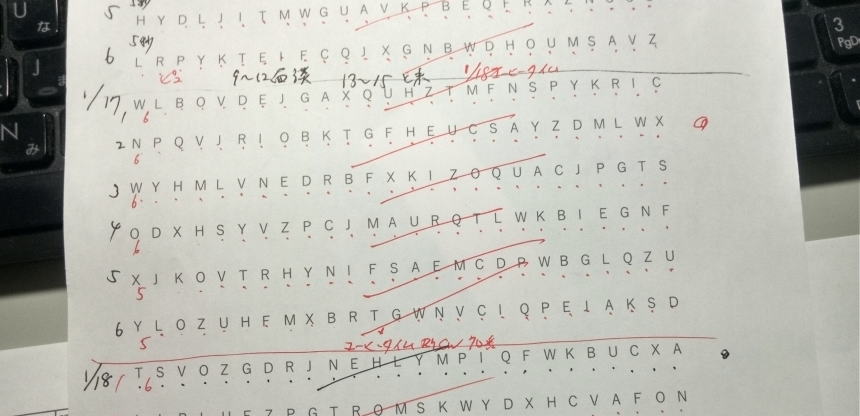 5 H Y D L J I T M W G U A V K P B E Q F R X Z N
6 L R P Y K T E I F C Q J X G N B W D H O U M S A V Z
9〜12面談 13〜15 1/18
1/17, W L B O V D E J G A X Q U H Z T M F N S P Y K R I C
6
2 N P Q V J R I O B K T G F H E U C S A Y Z D M L W X
6
3 W Y H M L V N E D R B F X K I Z O Q U A C J P G T S
6
4 O D X H S Y V Z P C J M A U R Q T L W K B I E G N F
6
5 X J K O V T R H Y N I F S A E M C D P W B G L Q Z U
5
6 Y L O Z U H F M X B R T G W N V C I Q P E J A K S D
5
1/18 T S V O Z G D R J N E H L Y M P I Q F W K B U C X A
6
Z P G T R Q M S K W Y D X H C V A F O N
U
な
J
N
み
3
PgD